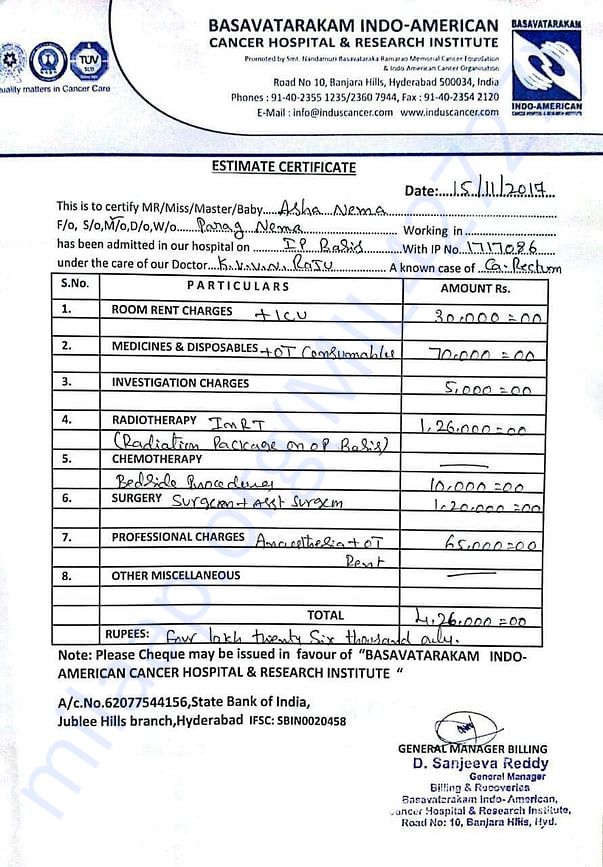 BASAVATARAKAM INDO-AMERICAN
CANCER HOSPITAL & RESEARCH INSTITUTE
Promoted by Smt. Nandamuri Basavataraka Ramarao Memorial Cancer Foundation
& Indo American Cancer Organisation
Road No 10, Banjara Hills, Hyderabad 500034, India
Phones : 91-40-2355 1235/2360 7944, Fax : 91-40-2354 2120
E-Mail : info@induscancer.com www.induscancer.com
TUV
uality matters in Cancer Care
BASAVATARAKAM
INDO-AMERICAN
CANCER HOSPITAL & RESEARCH INSTITUTE
ESTIMATE CERTIFICATE
Date:....15/11/2017
This is to certify MR/Miss/Master/Baby.....Asha Nema
F/o, S/o,M/o,D/o,W/o......Parag Nema Working in
has been admitted in our hospital on IP Basis With IP No.1717086
under the care of our Doctor..K.V.V.N. Raju A known case of Ca. Rectum
S.No. PARTICULARS AMOUNT Rs.
1. ROOM RENT CHARGES + ICU 30,000=00
2. MEDICINES & DISPOSABLES + OT Consumables 70,000=00
3. INVESTIGATION CHARGES 5,000=00
4. RADIOTHERAPY ImRT 1,26,000=00
(Radiation Package on OP Basis)
5. CHEMOTHERAPY —
Bedside Procedures 10,000=00
6. SURGERY Surgeon + Asst Surgeon 1,20,000=00
7. PROFESSIONAL CHARGES Anaesthesia + OT 65,000=00
Rent
8. OTHER MISCELLANEOUS —
TOTAL 4,26,000=00
RUPEES: Four lakh twenty Six thousand only.
Note: Please Cheque may be issued in favour of "BASAVATARAKAM INDO-
AMERICAN CANCER HOSPITAL & RESEARCH INSTITUTE "
A/c.No.62077544156,State Bank of India,
Jublee Hills branch,Hyderabad IFSC: SBIN0020458
GENERAL MANAGER BILLING
D. Sanjeeva Reddy
General Manager
Billing & Recoveries
Basavatarakam Indo-American,
Cancer Hospital & Research Institute,
Road No: 10, Banjara Hills, Hyd.